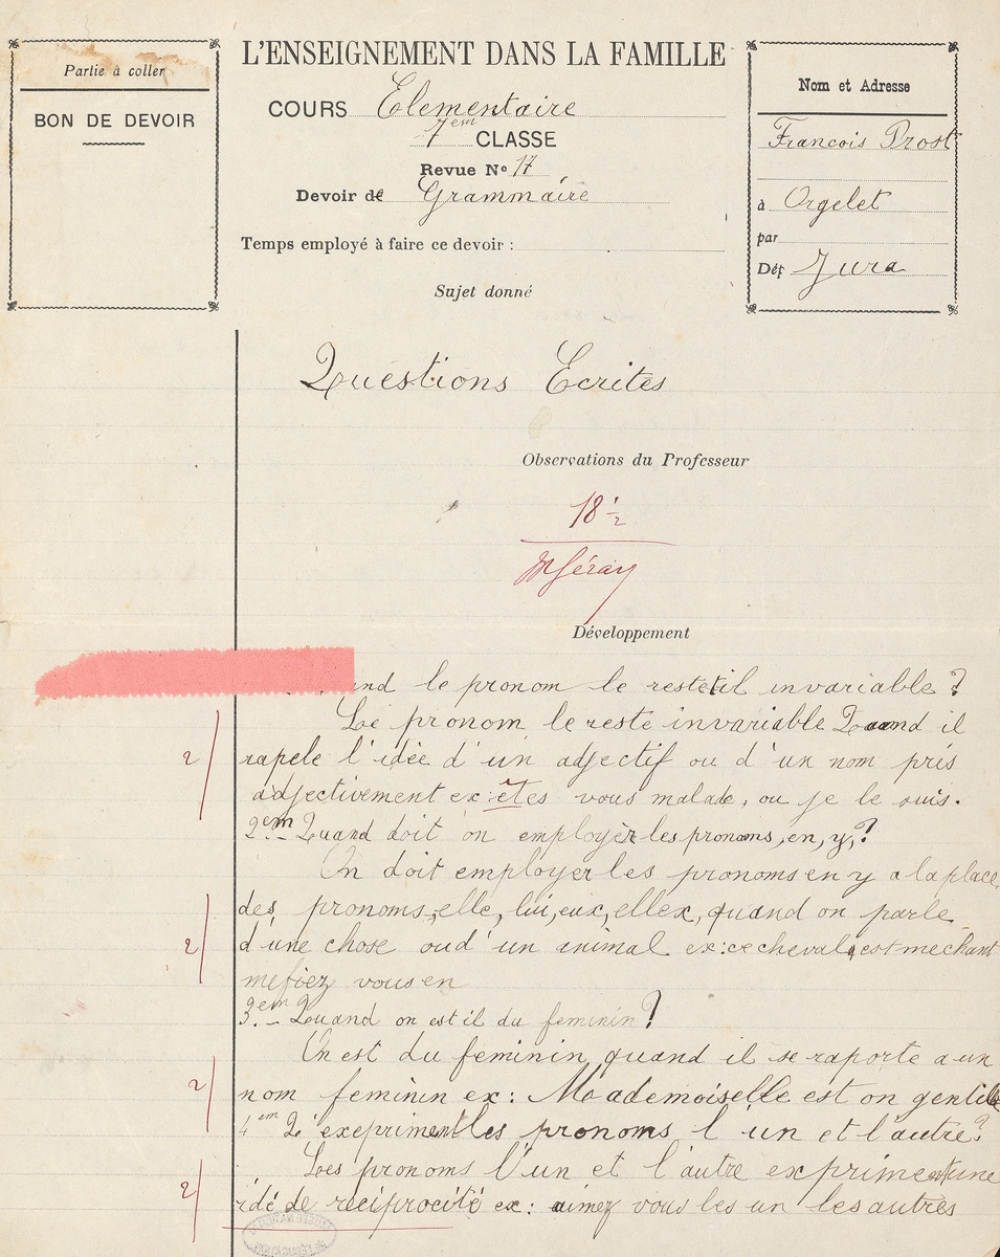 Partie à coller
BON DE DEVOIR
L'ENSEIGNEMENT DANS LA FAMILLE
COURS Elementaire
7em CLASSE
Revue No 17
Devoir de Grammaire
Temps employé à faire ce devoir :
Sujet donné
Nom et Adresse
Francois Prost
à Orgelet
par
Dép Jura
Questions Ecrites
Observations du Professeur
18 1/2
Développement
and le pronom le restetil invariable ?
Le pronom le reste invariable Quand il
2 rapele l'idée d'un adjectif ou d'un nom pris
adjectivement ex: êtes vous malade, ou je le suis.
2em_ Quand doit on employèr les pronoms, en, y, ?
On doit employer les pronoms en y a la place
des pronoms, elle, lui, eux, elles, quand on parle
2 d'une chose ou d'un animal ex: ce cheval est mechant
mefiez vous en
3em_ Quand on est il du feminin ?
On est du feminin quand il se raporte a un
2 nom feminin ex: Mademoiselle est on gentille
4em Q'exepriment les pronoms l un et l'autre ?
Les pronoms l'un et l'autre expriment une
2 idé de reciprocité ex: aimez vous les un les autres